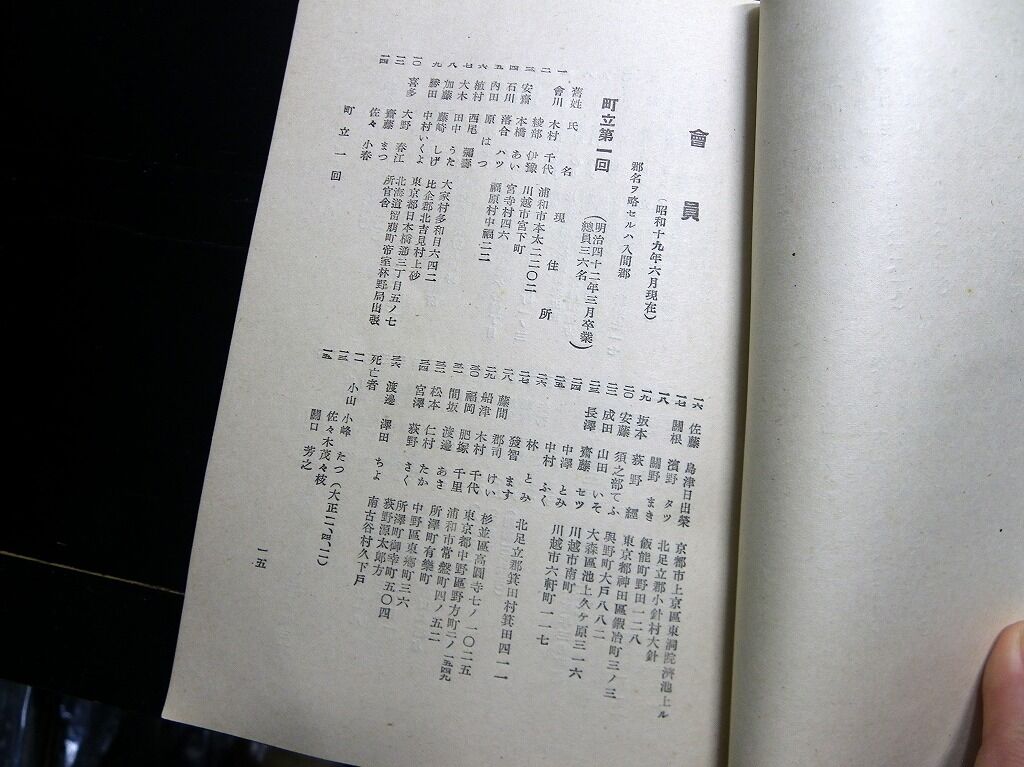 會員
(昭和十九年六月現在)
郡名ヲ略セルハ入間郡
町立第一回
(明治四十二年三月卒業)
(總員三六名)
舊姓 氏名 現住所
一 會川 木村 千代 浦和市本太二二〇二
二 綾部 伊豫 川越市宮下町
三 安齋 本橋 あい 宮寺村四六
四 石川 落合 ハツ 福原村中福二二
五 內田 原 はつ
六 植村 西尾
七 大木 田中 うた 大家村多和目六四二
八 加藤 藤崎 しげ 比企郡北吉見村上砂
九 勝田 中村 いくよ 東京都日本橋通三丁目五ノ七
一〇 喜多 大野 春江 北海道留萌町帝室林野局出張所官舍
一三 齋藤 まつ
一四 佐々 小春
町立一回
一六 佐藤 島津日出榮 京都市上京區東洞院濟池上ル
一七 關根 濱野 タツ 北足立郡小針村大針
一八 關野 まき 飯能町野田一二八
一九 坂本 荻野 經 東京都神田區鍛冶町三ノ三
二〇 安藤 須之部てふ 與野町大戸八八二
二二 成田 山田 いそ 大森區池上久ケ原三一六
二三 長澤 齋藤 セツ 川越市南町
二四 中澤 とみ 川越市六軒町一一七
二五 中村 ふく
二六 林 とみ
二七 發智 ます 北足立郡箕田村箕田四一一
二八 藤間 郡司 けい 杉並區高圓寺七ノ一〇二五
二九 船津 木村 千代 東京都中野區野方町二ノ一五四九
三〇 福岡 肥塚 千里 浦和市常盤町四ノ五二
三一 間坂 渡邊 あさ 所澤町有樂町
三二 松本 仁村 たか 中野區東郷町三六
三四 宮澤 荻野 さく 所澤町御幸町五〇四荻野源太郎方
三六 渡邊 澤田 ちよ 南古谷村久下戸
死亡者
一一 小山 小峰 たつ (大正二、四、一二)
一二 佐々木茂々枝
一五 關口 芳之
一五